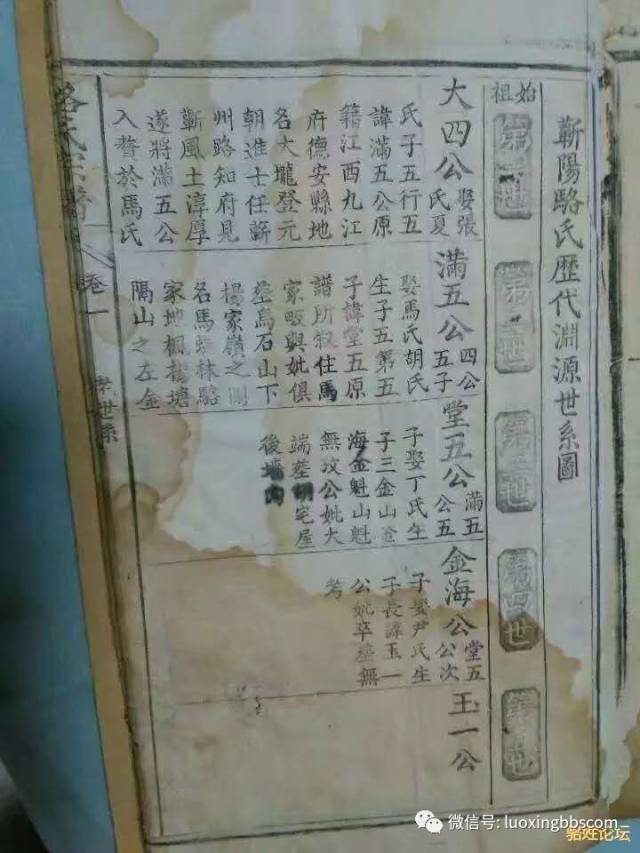 蘄陽駱氏歷代淵源世系圖
始祖
第一世
第二世
第三世
第四世
第五世
大四公 娶張
氏夏
氏子五行五
諱滿五公原
籍江西九江
府德安縣地
名大壠登元
朝進士任蘄
州路知府見
蘄風土淳厚
遂將滿五公
入贅於馬氏
滿五公 四公
五子
娶馬氏胡氏
生子五第五
子諱堂五原
譜所叙住馬
家畈與妣俱
塟烏石山下
楊家嶺之側
名馬 林駱
家地楓樹塘
隔山之左金
堂五公 滿五
公五
子娶丁氏生
子三金山金
海金魁山魁
無坟公妣大
端塟 宅屋
後墻
金海公 堂五
公次
子娶尹氏生
子長諱玉一
公妣卒塟無
考
玉一公
駱氏宗譜
卷一
世系
微信号: luoxingbbscom
骆姓论坛